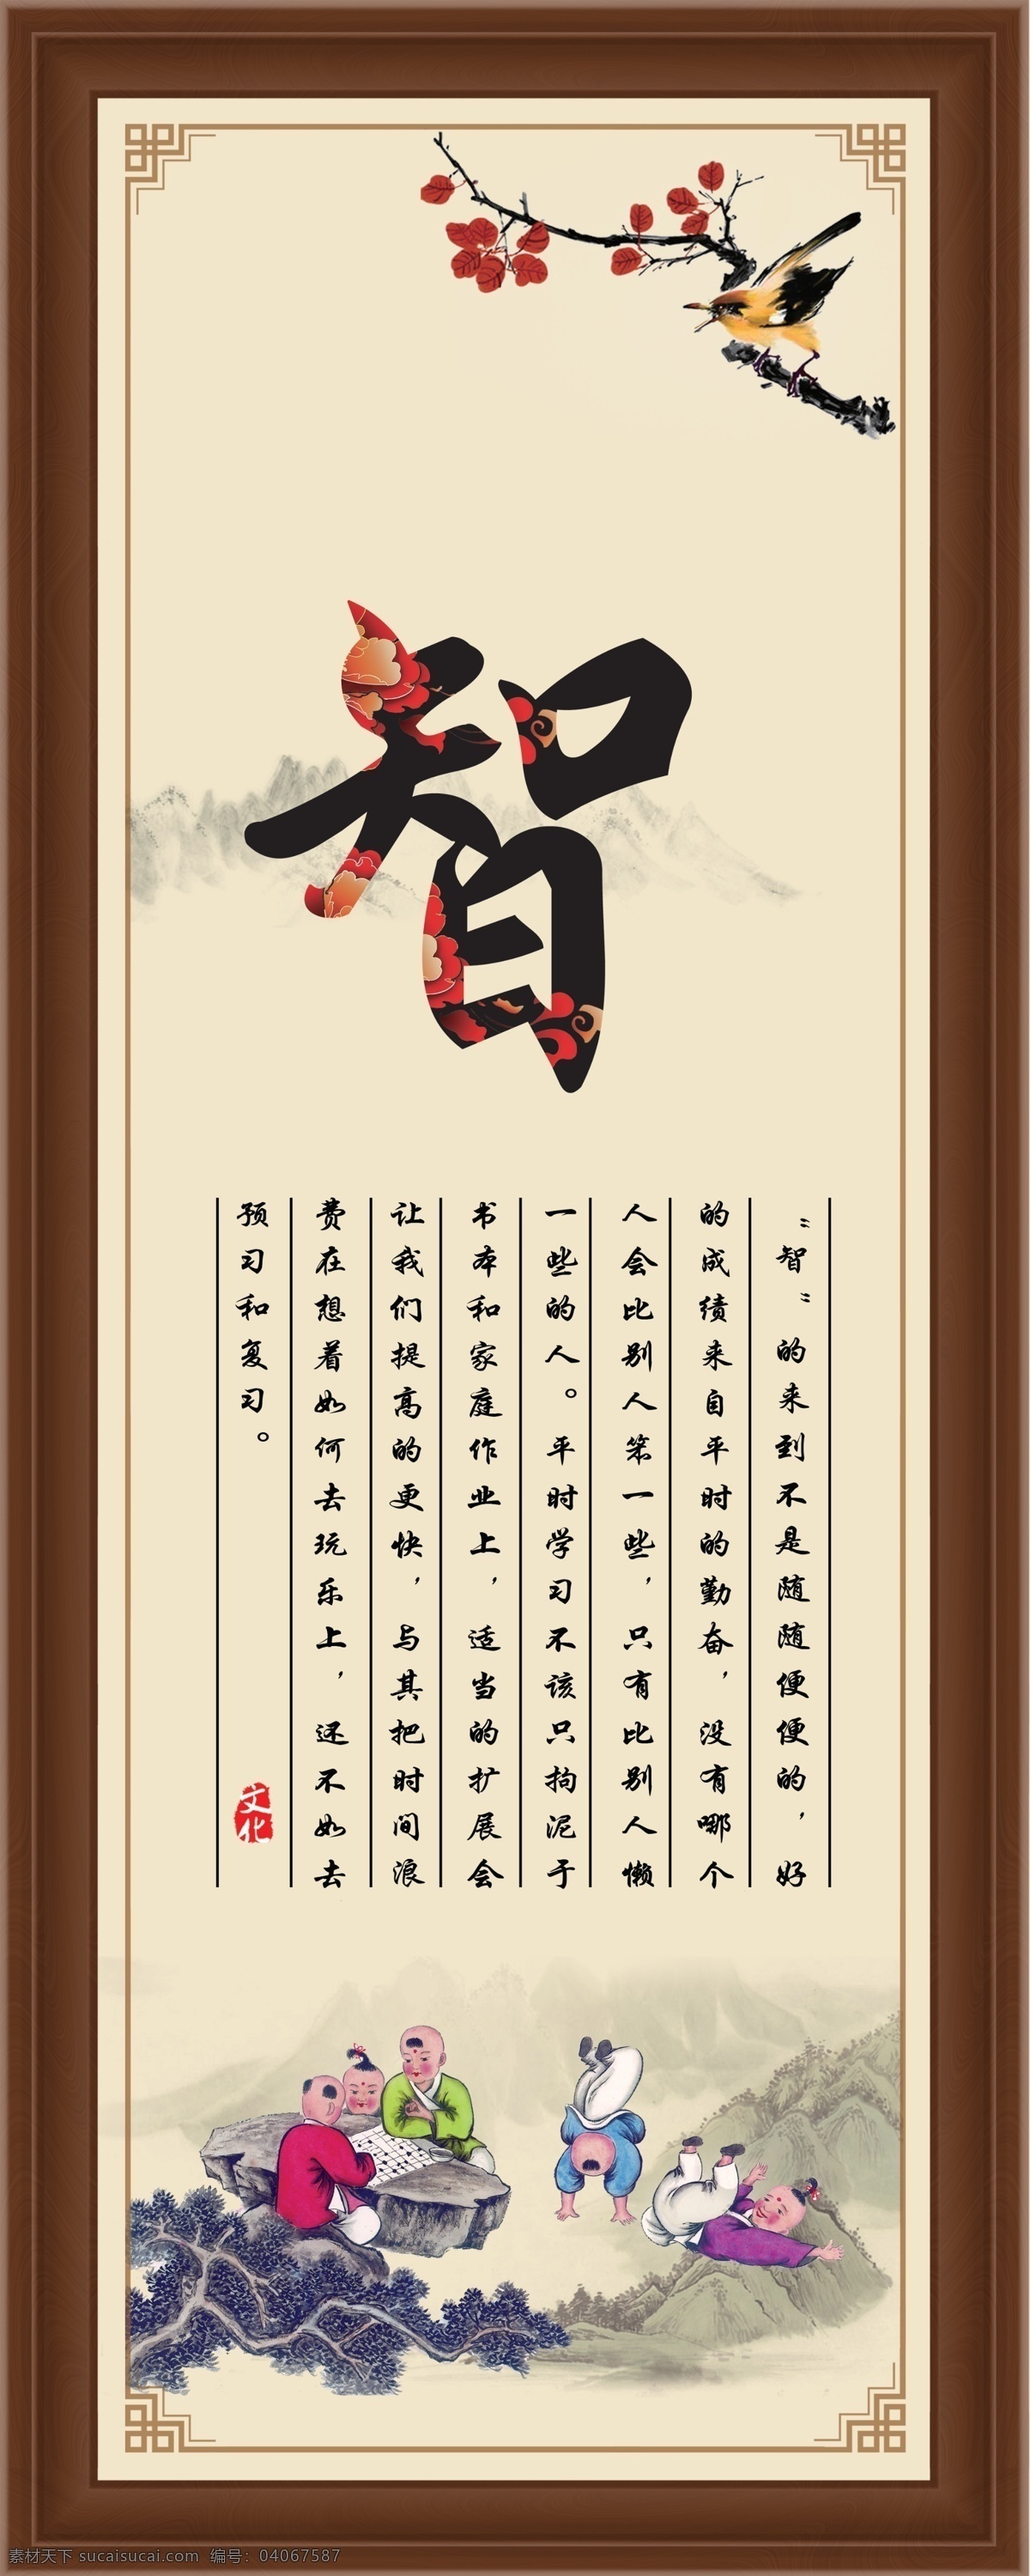 智
“智”的来到不是随随便便的，好
的成绩来自平时的勤奋，没有哪个
人会比别人笨一些，只有比别人懒
一些的人。平时学习不该只拘泥于
书本和家庭作业上，适当的扩展会
让我们提高的更快，与其把时间浪
费在想着如何去玩乐上，还不如去
预习和复习。
文化
素材天下 sucaisucai.com 编号：04067587